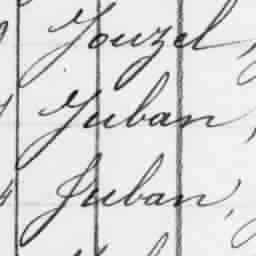 Jouzel,
Juban,
Juban,